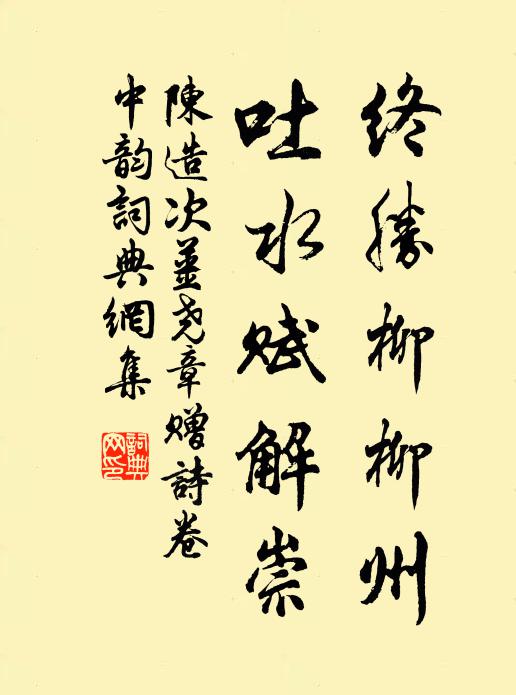 終勝柳柳州
吐水賦解崇
陳造次薑尧章贈詩卷
中韵詞典網集
詞典
网印